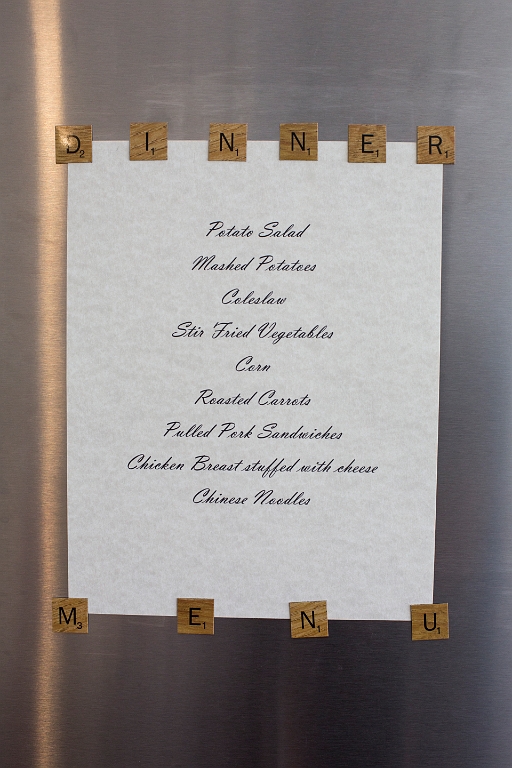 D2 I1 N1 N1 E1 R1
Potato Salad
Mashed Potatoes
Coleslaw
Stir Fried Vegetables
Corn
Roasted Carrots
Pulled Pork Sandwiches
Chicken Breast stuffed with cheese
Chinese Noodles
M3 E1 N1 U1